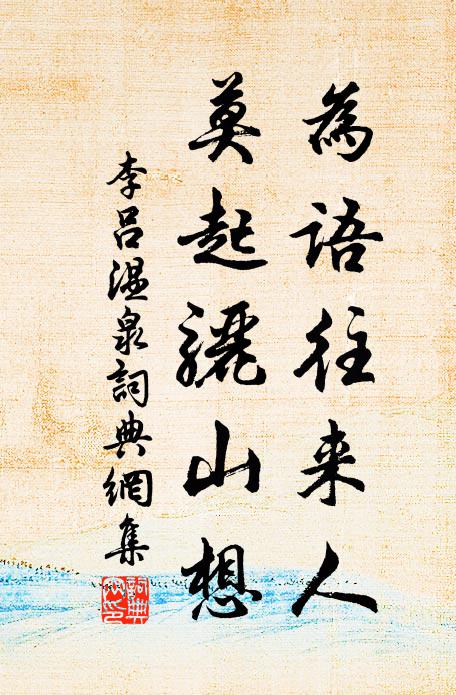 為語往来人
莫起驪山想
李呂溫泉詞典網集